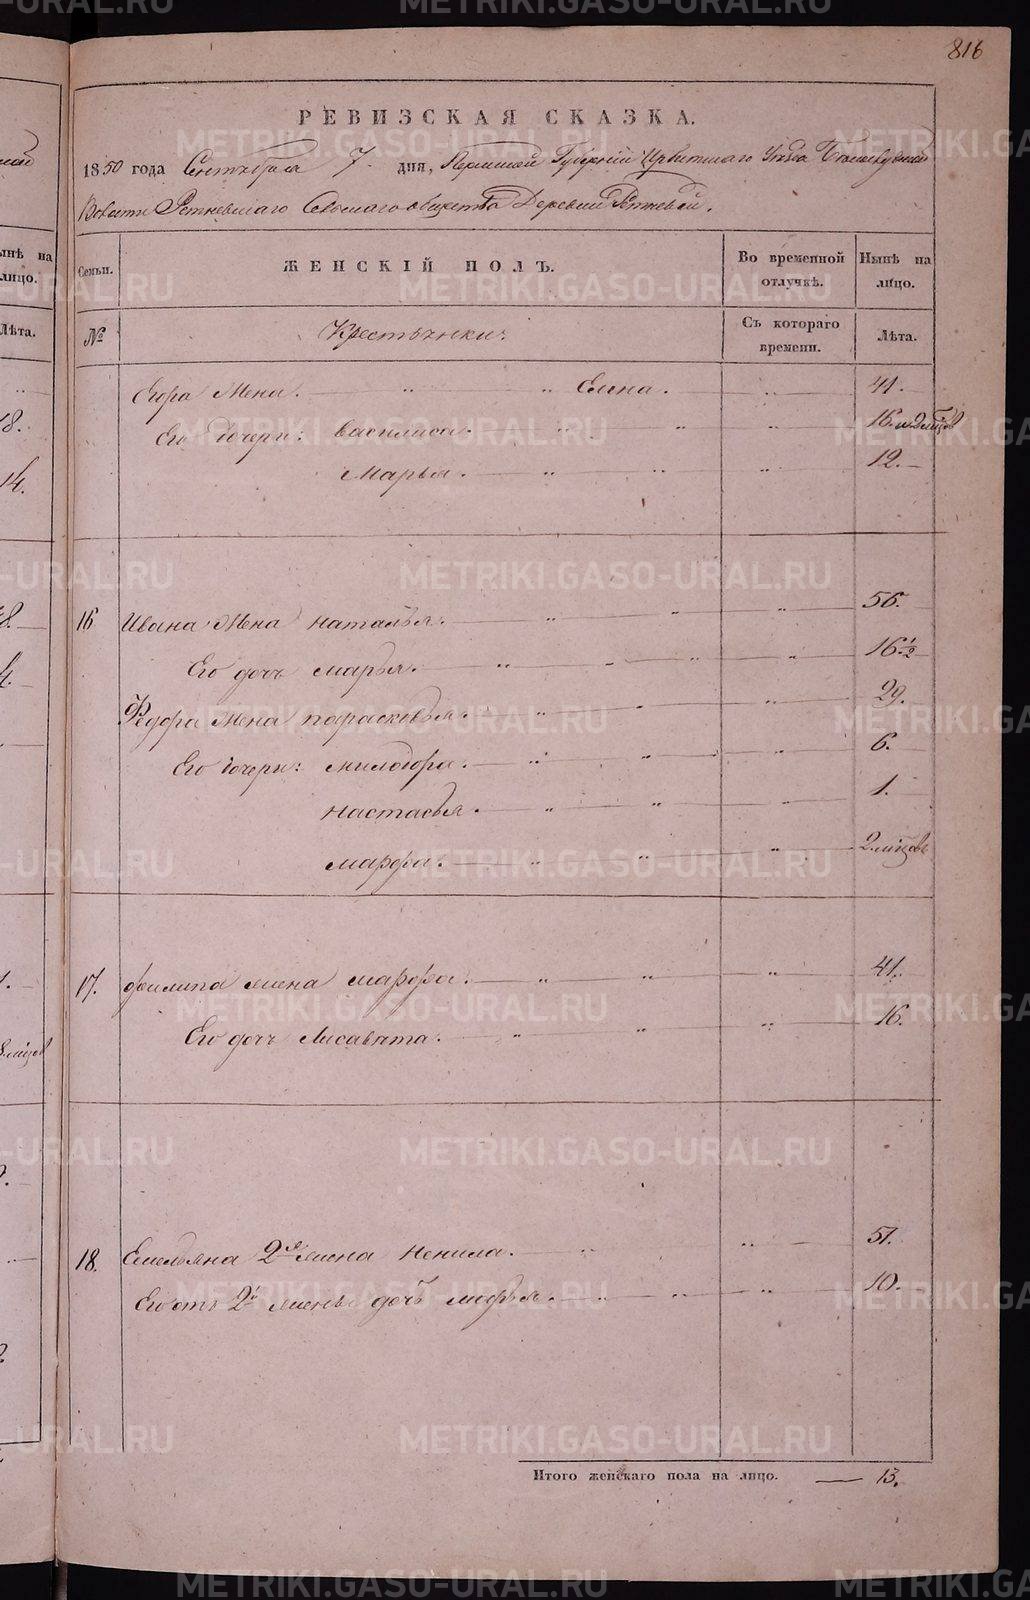 816
РЕВИЗСКАЯ СКАЗКА.
1850 года Сентября 7 дня, Пермской Губернiи Ирбитскаго Уѣзда
Волости Ретневскаго Сельскаго общества Деревни Ретневой.
Семьи. ЖЕНСКIЙ ПОЛЪ. Во временной отлучкѣ. Нынѣ на лицо.
№ Крестьянки: Съ котораго времени. Лѣта.
Егора Жена. " " Елена. " 41.
Его дочери: Василиса. " " " 16. и
Марья. " " " 12.
16 Ивана Жена Наталья. " " " 56.
Его дочь Марья. " " " " 16 1/2
Федора Жена Парасковья. " " " 29.
Его дочери: Милодора. " " " 6.
Настасья. " " " 1.
Марфа. " " " 2 мѣсцовъ
17. Филипа жена Марфа. " " " 41.
Его дочь Лисавѣта. " " " 16.
18. Емельяна 2я жена Ненила. " " 51.
Его отъ 2й жены дочь Марья. " " " 10.
Итого женскаго пола на лицо. 13.
ынѣ на
лицо.
Лѣта.
18.
14.
METRIKI.GASO-URAL.RU